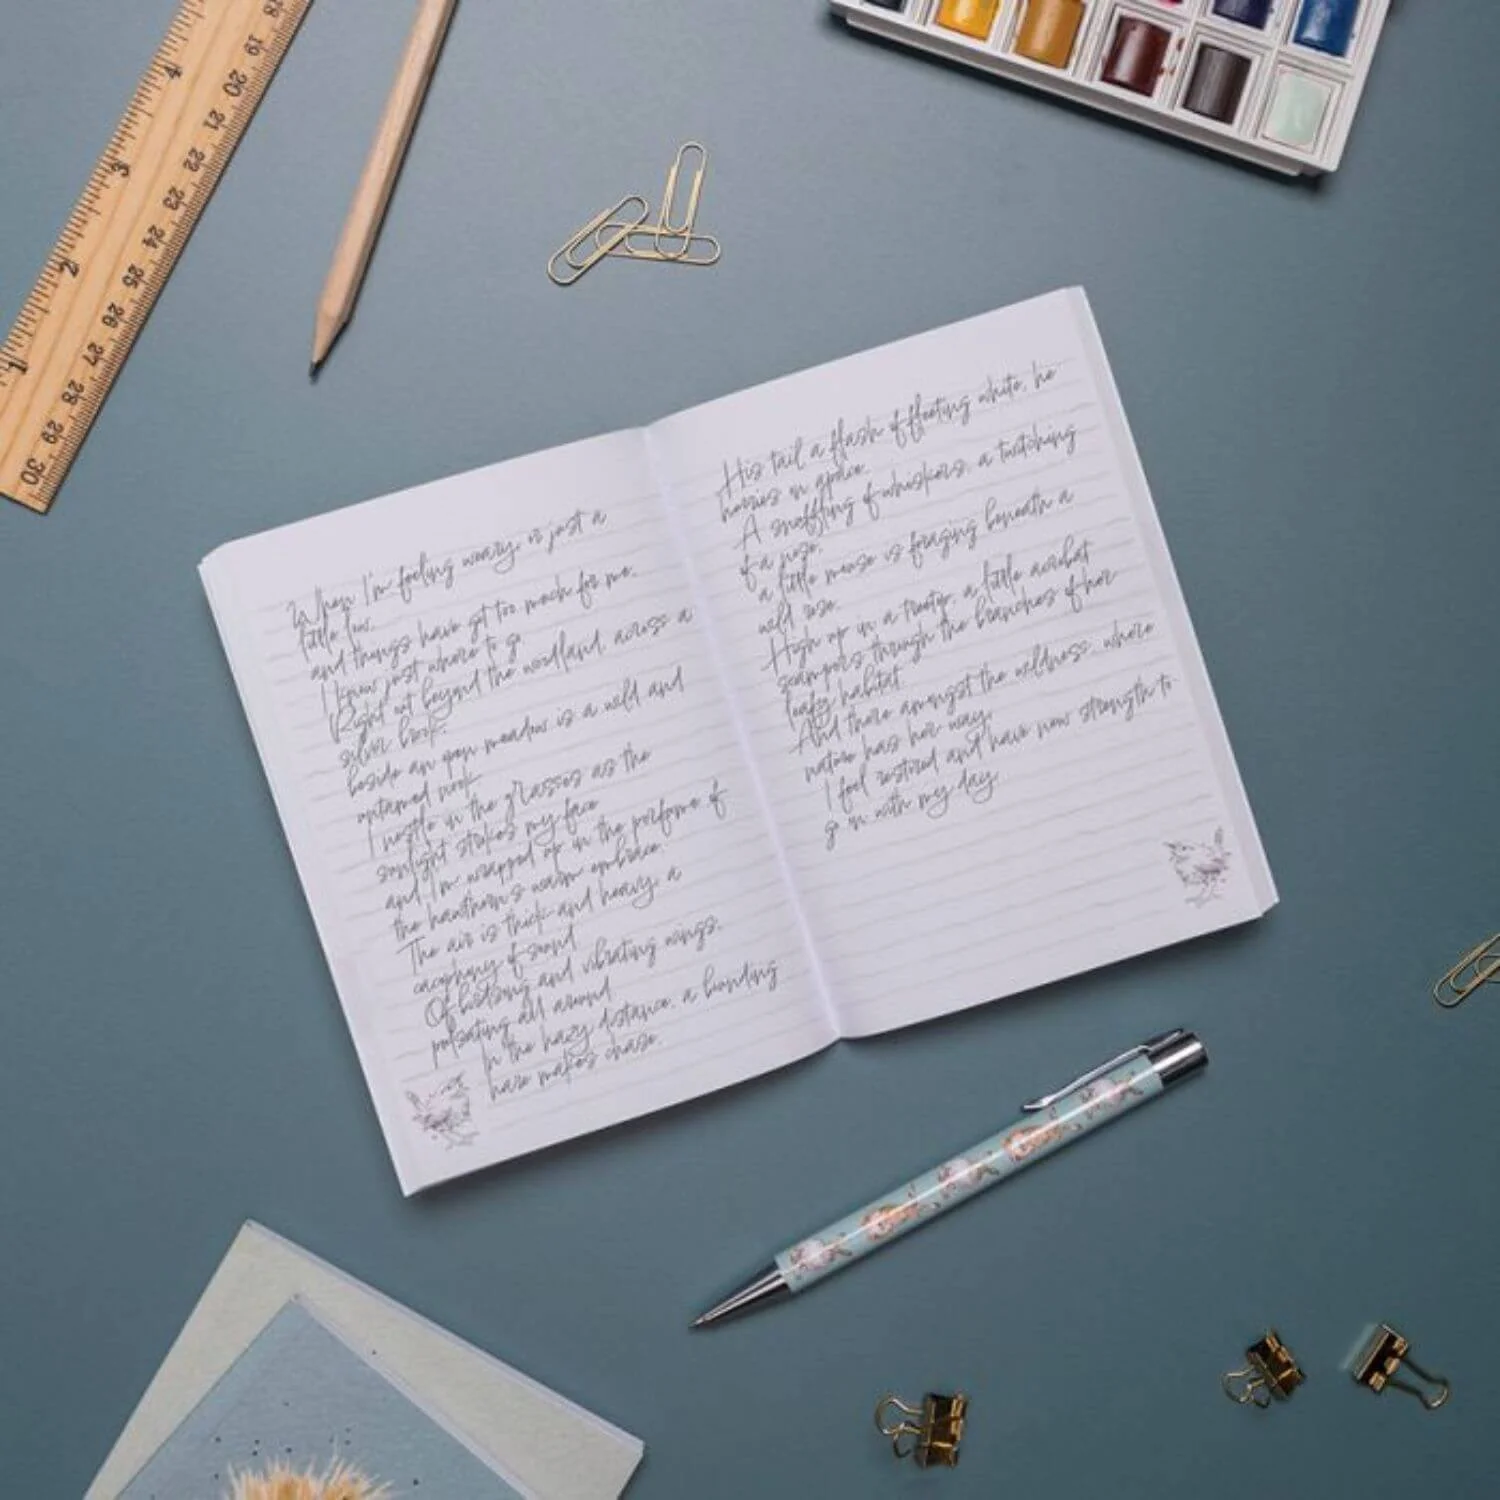 When I'm feeling weary, or just a
little low,
and things have got too much for me,
I know just where to go
Right out beyond the woodland, across a
silver brook,
beside an open meadow is a wild and
untamed nook
I nestle in the grasses as the
sunlight strokes my face
and I'm wrapped up in the perfume of
the hawthorn's warm embrace.
The air is thick and heavy, a
cacophony of sound
Of birdsong and vibrating wings,
pulsating all around
In the hazy distance, a bounding
hare makes chase.
His tail a flash of fleeting white, he
hurries on apace.
A snuffling of whiskers, a twitching
of a nose,
a little mouse is foraging beneath a
wild rose.
High up in a treetop, a little acrobat
scampers through the branches of her
leafy habitat
And there amongst the wildness, where
nature has her way,
I feel restored and have new strength to
go on with my day
18
19
20
21
22
23
24
25
26
27
28
29
30
4
3
2
1